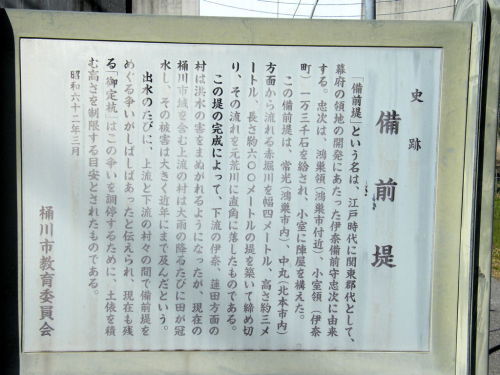 史跡
備前堤
「備前堤」という名は、江戸時代に関東郡代として、
幕府の領地の開発にあたった伊奈備前守忠次に由来
する。忠次は、鴻巣領(鴻巣市付近)、小室領(伊奈
町)一万三千石を給され、小室に陣屋を構えた。
この備前堤は、常光(鴻巣市内)、中丸(北本市内)
方面から流れる赤堀川を幅四メートル、高さ約三メ
ートル、長さ約六〇〇メートルの堤を築いて締め切
り、その流れを元荒川に直角に落したものである。
この堤の完成によって、下流の伊奈、蓮田方面の
村は洪水の害をまぬがれるようになったが、現在の
桶川市域を含む上流の村は大雨の降るたびに田が冠
水し、その被害は大きく近年にまで及んだという。
出水のたびに、上流と下流の村々の間で備前堤を
めぐる争いがしばしばあったと伝えられ、現在も残
る「御定杭」はこの争いを調停するために、土俵を積
む高さを制限する目安とされたものである。
昭和六十二年三月
桶川市教育委員会